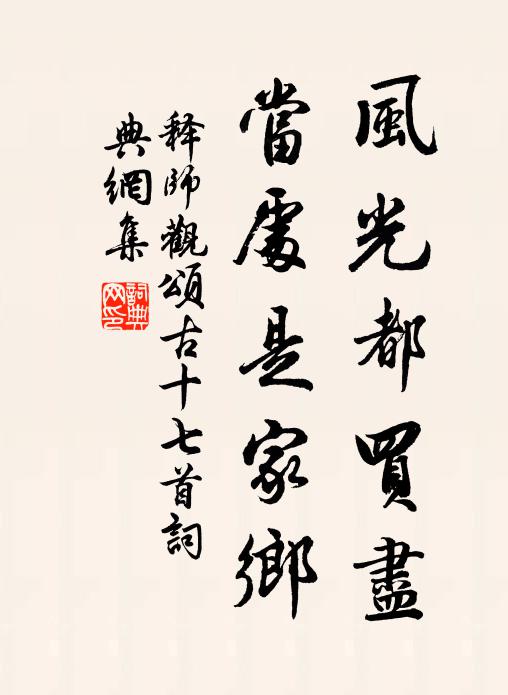 風光都買盡
當處是家鄉
釋師觀頌古十七首詞
典網集
詞典網印